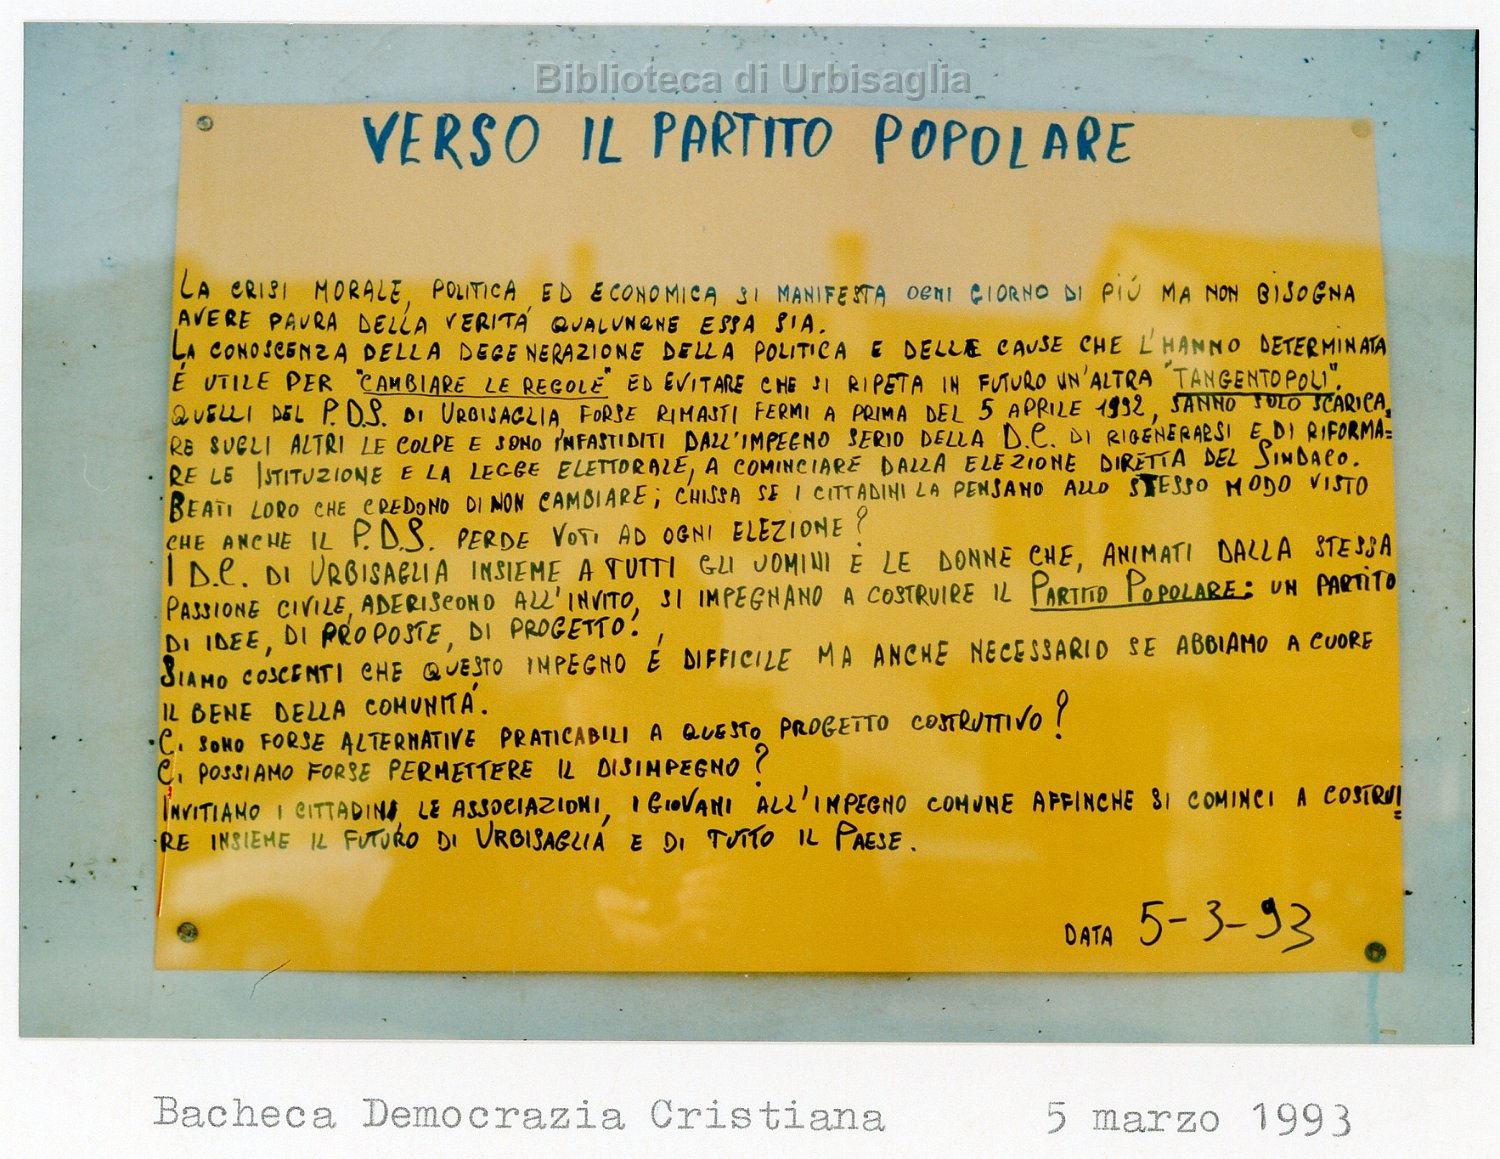 Biblioteca di Urbisaglia
VERSO IL PARTITO POPOLARE
LA CRISI MORALE, POLITICA ED ECONOMICA SI MANIFESTA OGNI GIORNO DI PIÚ MA NON BISOGNA
AVERE PAURA DELLA VERITÁ QUALUNQNE ESSA SIA.
LA CONOSCENZA DELLA DEGENERAZIONE DELLA POLITICA E DELLE CAUSE CHE L'HANNO DETERMINATA
É UTILE PER "CAMBIARE LE REGOLE" ED EVITARE CHE SI RIPETA IN FUTURO UN'ALTRA "TANGENTOPOLI".
QUELLI DEL P.D.S. DI URBISAGLIA, FORSE RIMASTI FERMI A PRIMA DEL 5 APRILE 1992, SANNO SOLO SCARICA=
RE SUGLI ALTRI LE COLPE E SONO INFASTIDITI DALL'IMPEGNO SERIO DELLA D.C. DI RIGENERARSI E DI RIFORMA=
RE LE ISTITUZIONE E LA LEGGE ELETTORALE, A COMINCIARE DALLA ELEZIONE DIRETTA DEL SINDACO.
BEATI LORO CHE CREDONO DI NON CAMBIARE; CHISSA SE I CITTADINI LA PENSANO ALLO STESSO MODO VISTO
CHE ANCHE IL P.D.S. PERDE VOTI AD OGNI ELEZIONE?
I D.C. DI URBISAGLIA INSIEME A TUTTI GLI UOMINI E LE DONNE CHE, ANIMATI DALLA STESSA
PASSIONE CIVILE, ADERISCONO ALL'INVITO, SI IMPEGNANO A COSTRUIRE IL PARTITO POPOLARE: UN PARTITO
DI IDEE, DI PROPOSTE, DI PROGETTO.
SIAMO COSCENTI CHE QUESTO IMPEGNO É DIFFICILE MA ANCHE NECESSARIO SE ABBIAMO A CUORE
IL BENE DELLA COMUNITÁ.
CI SONO FORSE ALTERNATIVE PRATICABILI A QUESTO PROGETTO COSTRUTTIVO?
CI POSSIAMO FORSE PERMETTERE IL DISIMPEGNO?
INVITIAMO I CITTADINI, LE ASSOCIAZIONI, I GIOVANI ALL'IMPEGNO COMUNE AFFINCHE SI COMINCI A COSTRUI=
RE INSIEME IL FUTURO DI URBISAGLIA E DI TUTTO IL PAESE.
DATA 5-3-93
Bacheca Democrazia Cristiana 5 marzo 1993